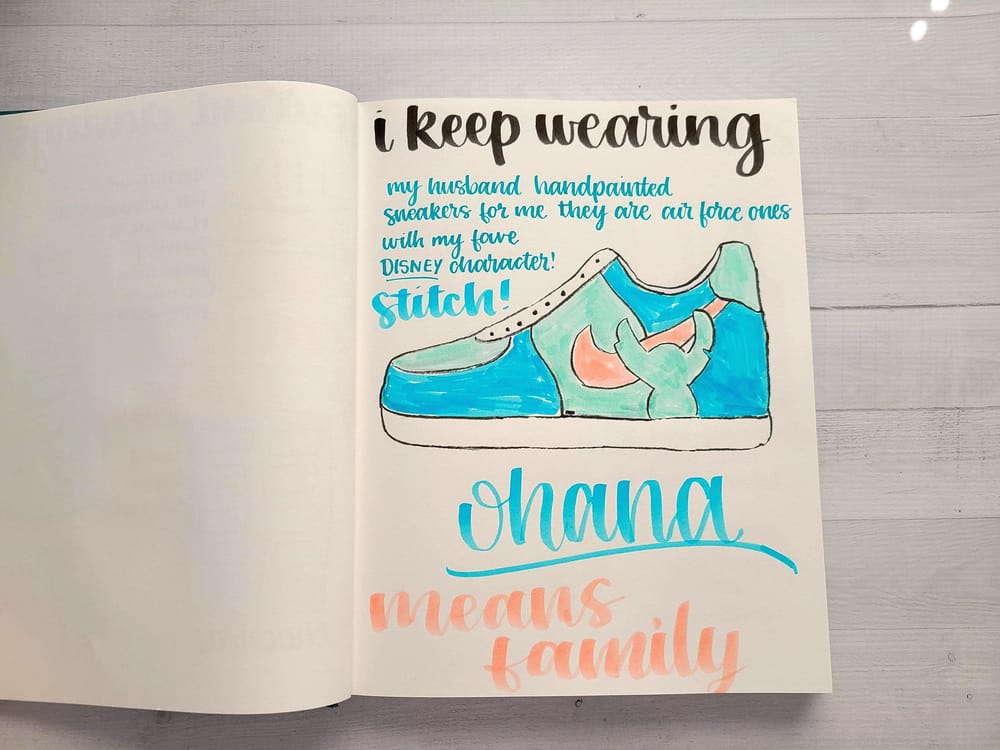 i keep wearing
my husband handpainted
sneakers for me they are air force ones
with my fave
DISNEY character!
stitch!
ohana
means
family